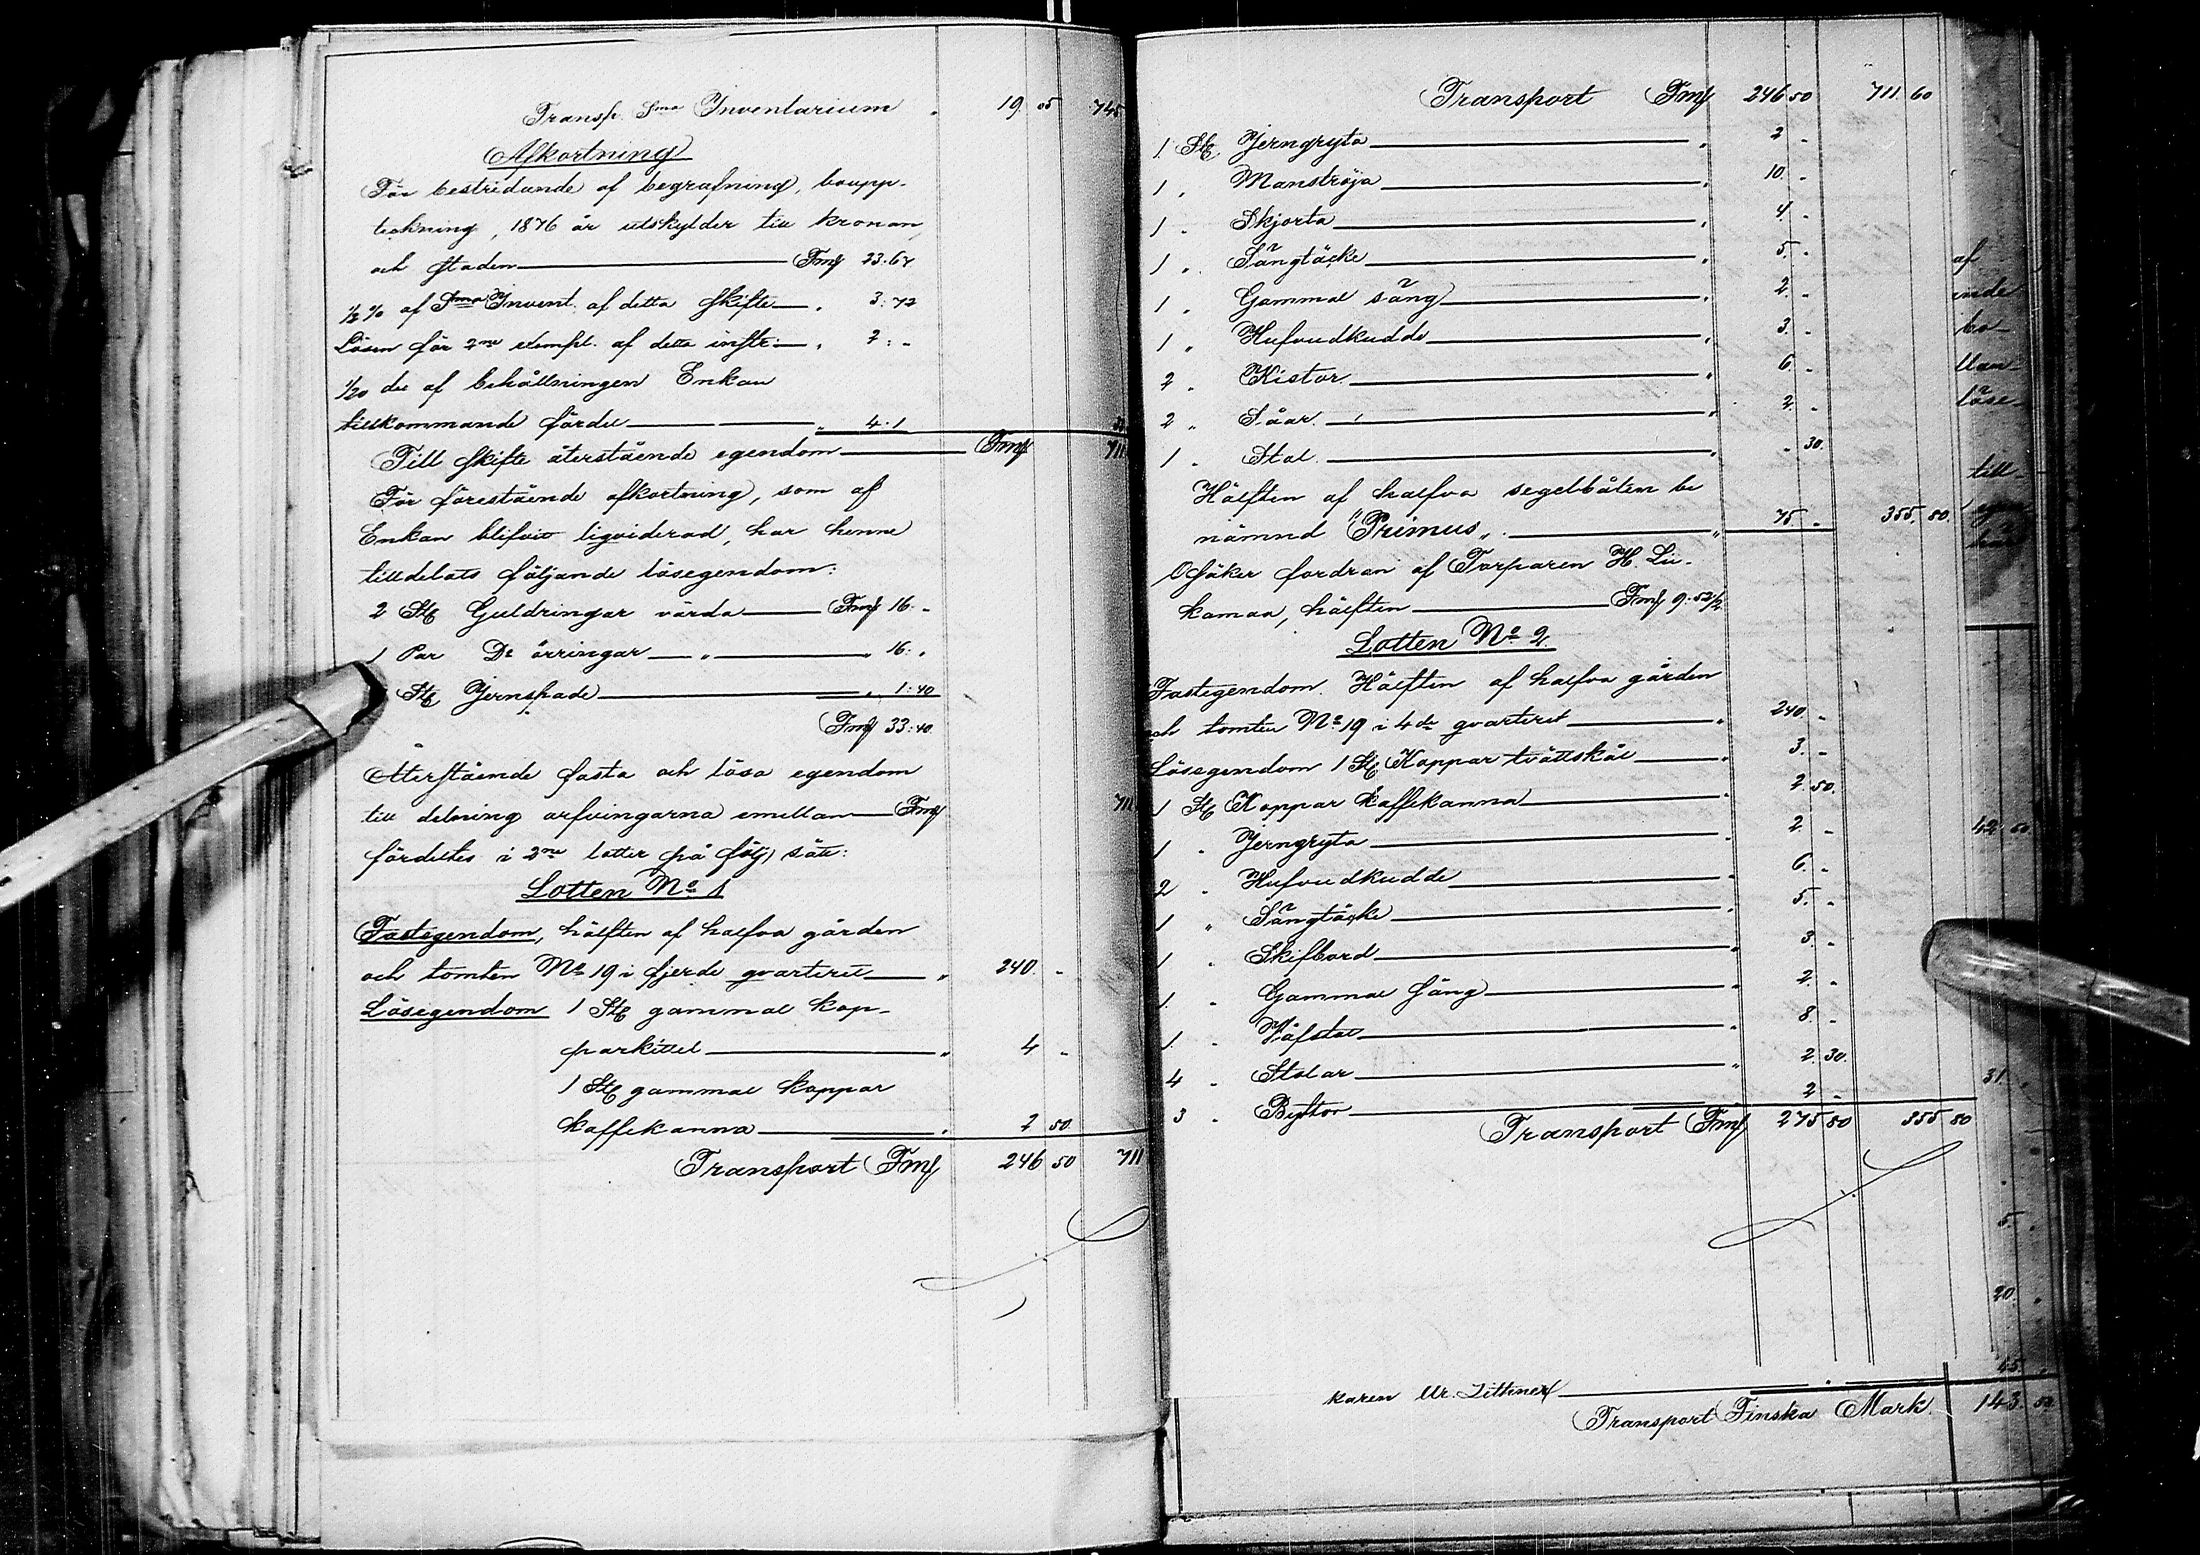 Transp. Sma Inventarium " 19 05 745
Afkortning
För bestridande af begrafning, boupp-
teckning, 1876 års utskylder till kronan
och staden Fmf 23.67
1/2 % af Sma Invent. af detta skifte " 3:72
Lösen för 2ne exempl. af detta instr: " 2: -
1/20 del af behållningen Enkan
tillkommande fördel " 4.1
Till skifte återstående egendom Fmf 711
För förestående afkortning, som af
Enkan blifvit liqviderad, har henne
tilldelats följande lösegendom:
2 St Guldringar värda Fmf 16. -
1 Par Do örringar " " 16. "
St Jernspade " 1:40
Fmf 33:40
Återstående fasta och lösa egendom
till delning arfvingarna emellan Fmf 711
fördeltes i 2ne lotter på följ sätt:
Lotten No 1
Fastegendom, hälften af halfva gården
och tomten No 19 i fjerde qvarteret " 240. -
Lösegendom 1 St gammal kop-
parkittel " 4 -
1 St gammal koppar
kaffekanna " 2 50
Transport Fmf 246 50 711
Transport Fmf 246 50 711. 60
1 St Jerngryta " 2 -
1 " Manströja " 10 -
1 " Skjorta " 4 -
1 " Sängtäcke " 5. -
1 " Gammal säng " 2. -
1 " Hufvudkudde " 3. -
2 " Kistor " 6 -
2 " Såar " 2 -
1 " Stol " - 30.
Hälften af halfva segelbåten be
nämnd "Primus" " 75 - 355. 80.
Osäker fordran af Torparen H. Liu-
kamaa, hälften Fmf 9.52 1/2
Lotten No 2
Fastegendom. Hälften af halfva gården
och tomten No 19 i 4de qvarteret " 240 -
Lösegendom 1 St Koppar tvättskål " 3. -
1 St Koppar kaffekanna " 2 50.
1 " Jerngryta " 2 -
2 " Hufvudkudde " 6. -
1 " Sängtäcke " 5. -
1 " Skifbord " 3. -
1 " Gammal säng " 2. -
1 " Väfstol " 8. -
4 " Stolar " 2. 30.
3 " Byttor 2 -
Transport Fmf 275 80 355 80
af
ande
bo-
llan-
löse-
till-
42 50
31. "
5. "
20. "
45. "
karen Ur. Dittmer
Transport Finska Mark. 143 50